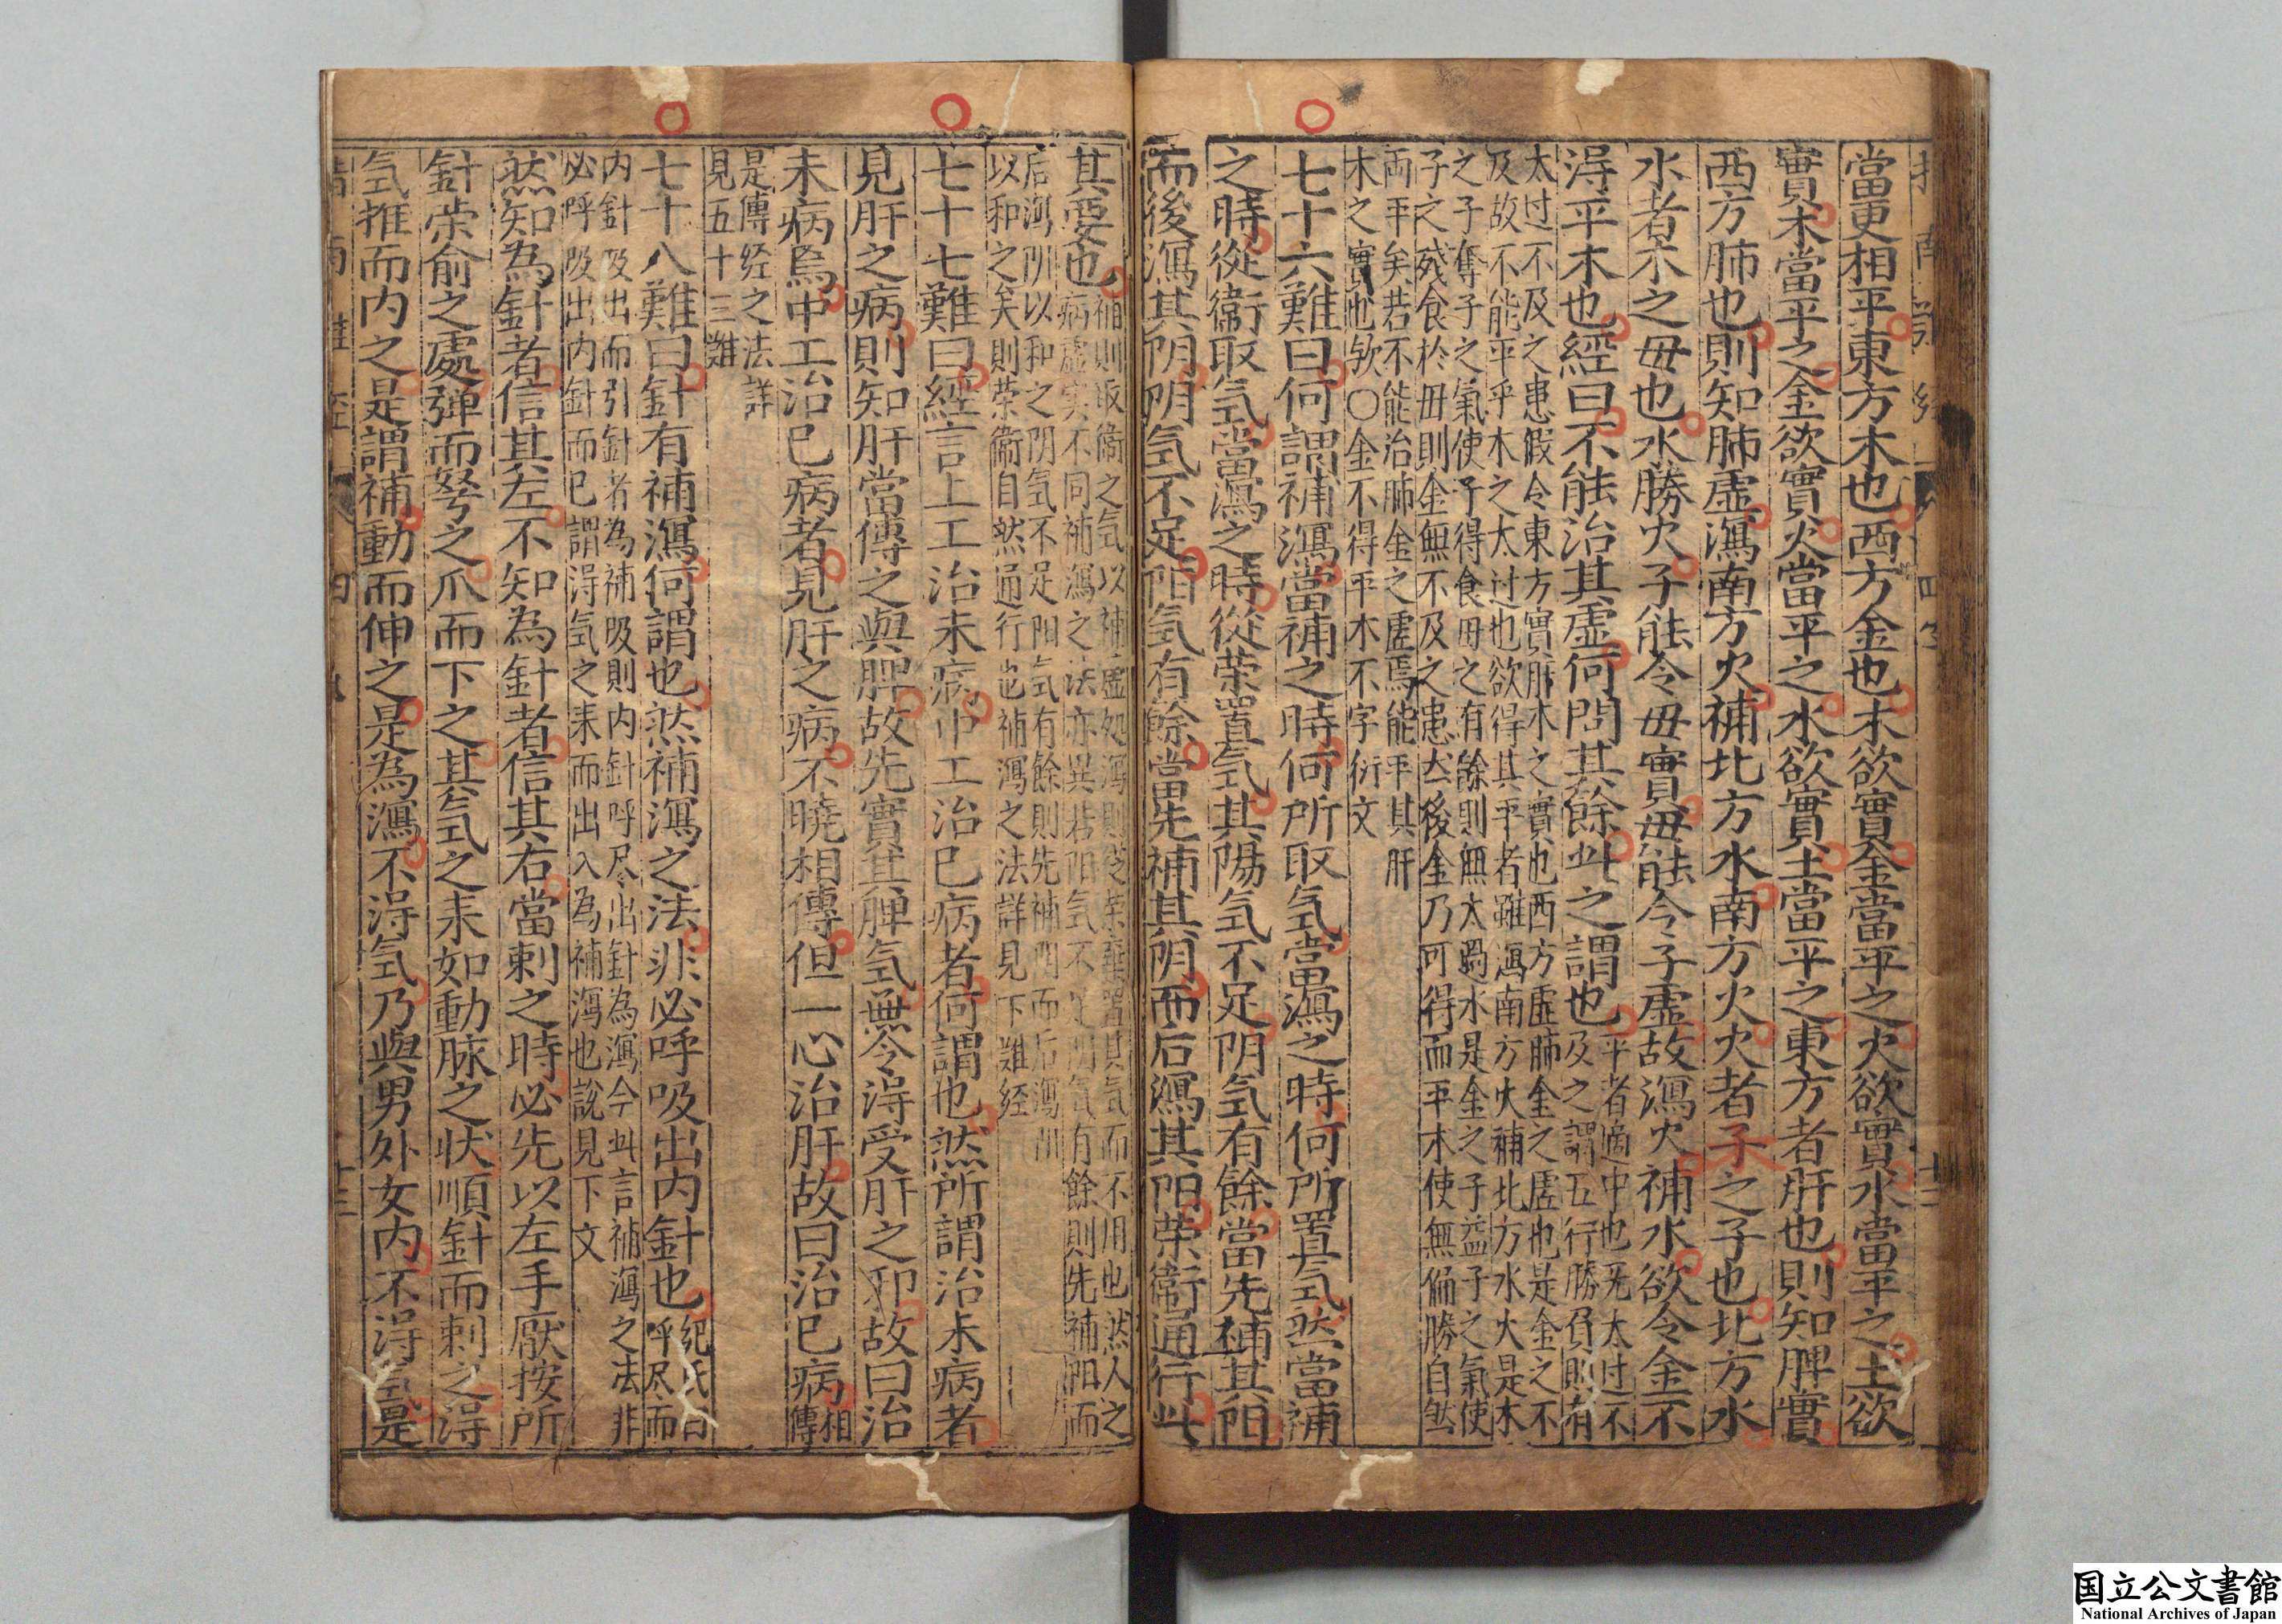 當更相平東方木也西方金也木欲實金當平之火欲實水當平之土欲
實木當平之金欲實火當平之水欲實土當平之東方者肝也則知脾實
西方肺也則知肺虛瀉南方火補北方水南方火火者子之子也北方水
水者木之母也水勝火子能令母實母能令子虛故瀉火補水欲令金不
淂平木也經曰不能治其虛何問其餘此之謂也平者適中也旡太过不
及之謂五行勝負則有
太过不及之患假令東方實肝木之實也西方虛肺金之虛也是金之不
及故不能平乎木之太过也欲得其平者雖瀉南方火補北方水火是木
之子奪子之氣使子得食母之有餘則無太過水是金之子益子之氣使
子之殘食於毋則金無不及之患去後金乃可得而平木使無偏勝自然
両平矣若不能治肺金之虛焉能平其肝
木之實也欤〇金不得平木不字衍文
七十六難曰何謂補瀉當補之時何所取気當瀉之時何所置気然當補
之時從衛取気當瀉之時從荣置気其陽気不足阴気有餘當先補其阳
而後瀉其阴阴気不足阳気有餘當先補其阴而后瀉其阳荣衛通行此
其要也補則取衛之気以補虛処瀉則從荣棄置其気而不用也然人之
病虛実不同補瀉之法亦異若阳気不足阴気有餘則先補阳而
后瀉阴以和之阴気不足阳気有餘則先補阴而后瀉阳
以和之矣則荣衛自然通行也補瀉之法詳見下難経
七十七難曰經言上工治未病中工治已病者何謂也然所謂治未病者
見肝之病則知肝當傳之與脾故先實其脾気無令淂受肝之邪故曰治
未病焉中工治已病者見肝之病不曉相傳但一心治肝故曰治已病相
傳
是傳経之法詳
見五十三難
七十八難曰針有補瀉何謂也然補瀉之法非必呼吸出内針也紀氏曰
呼尽而
内針吸出而引針者為補吸則内針呼尽出針為瀉今此言補瀉之法非
必呼吸出内針而已謂淂気之来而出入為補瀉也説見下文
然知為針者信其左不知為針者信其右當刺之時必先以左手厭按所
針荣俞之處弹而努之爪而下之其気之来如動脉之状順針而刺之淂
気推而内之是謂補動而伸之是為瀉不淂気乃與男外女内不淂気是
国立公文書館
National Archives of Japan